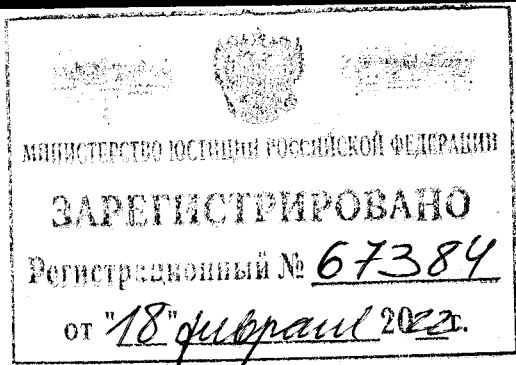 МИНИСТЕРСТВО ЮСТИЦИИ РОССИЙСКОЙ ФЕДЕРАЦИИ
ЗАРЕГИСТРИРОВАНО
Регистрационный № 67384
от "18" февраля 2022г.